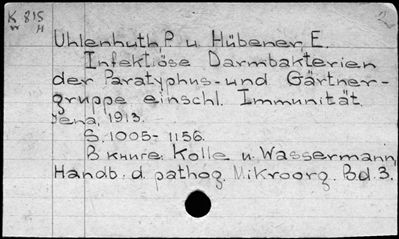 K 815
H
Uhlenhuth, P. u. Hübener, E.
Infektiöse Darmbakterien
der Paratyphus- und Gärtner-
gruppe einschl. Immunität.
Jena, 1913.
S. 1005-1156.
В книге: Kolle u. Wassermann,
Handb. d. pathog. Mikroorg. Bd. 3.